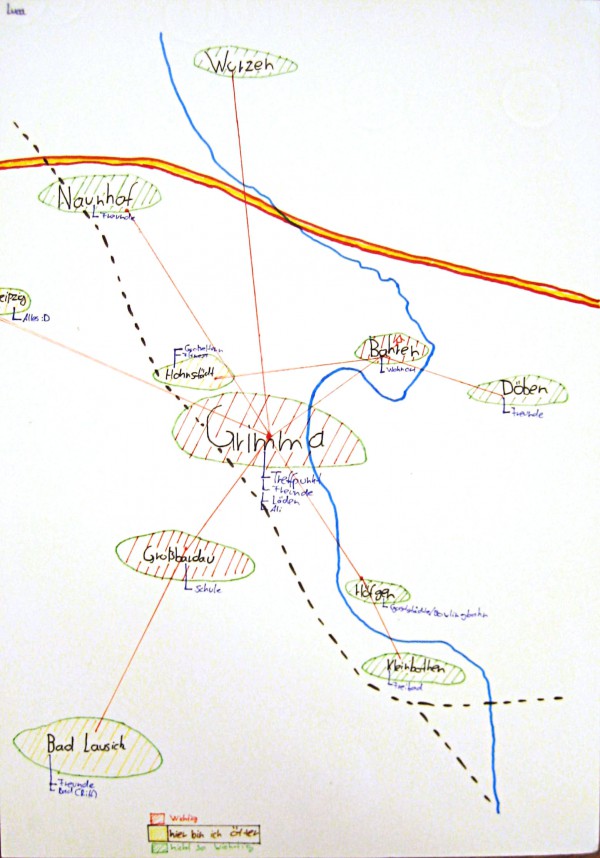 Wurzen
Naunhof
Freunde
eipzig
Alles :D
Hohnstädt
Bahren
Wohnort
Döben
Freunde
Grimma
Treffpunkt
Freunde
Läden
Ali
Großbardau
Schule
Höfgen
Kleinbothen
Freibad
Bad Lausick
Freunde
Bad (Riff)
Wichtig
hier bin ich öfter
nicht so wichtig